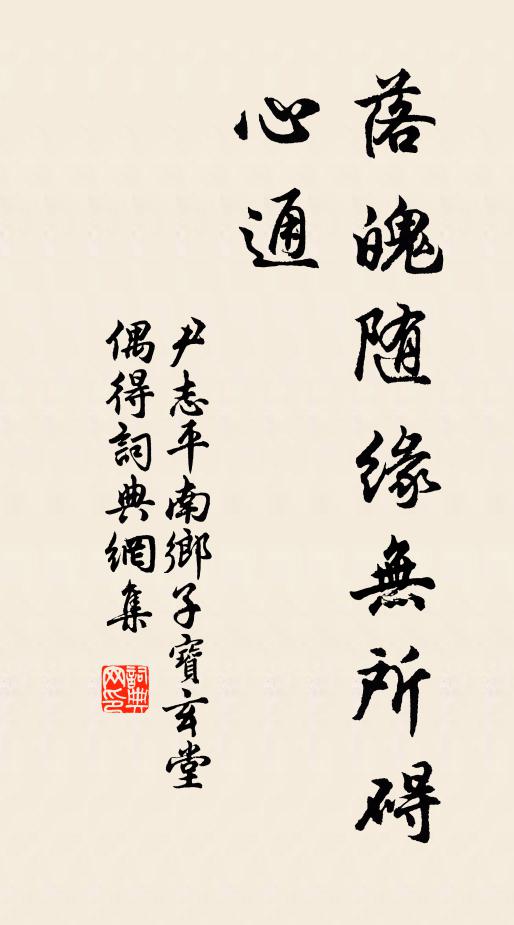 落魄随緣無所碍
心通
尹志平南鄉子寶玄堂
偶得詞典網集
詞典
网印